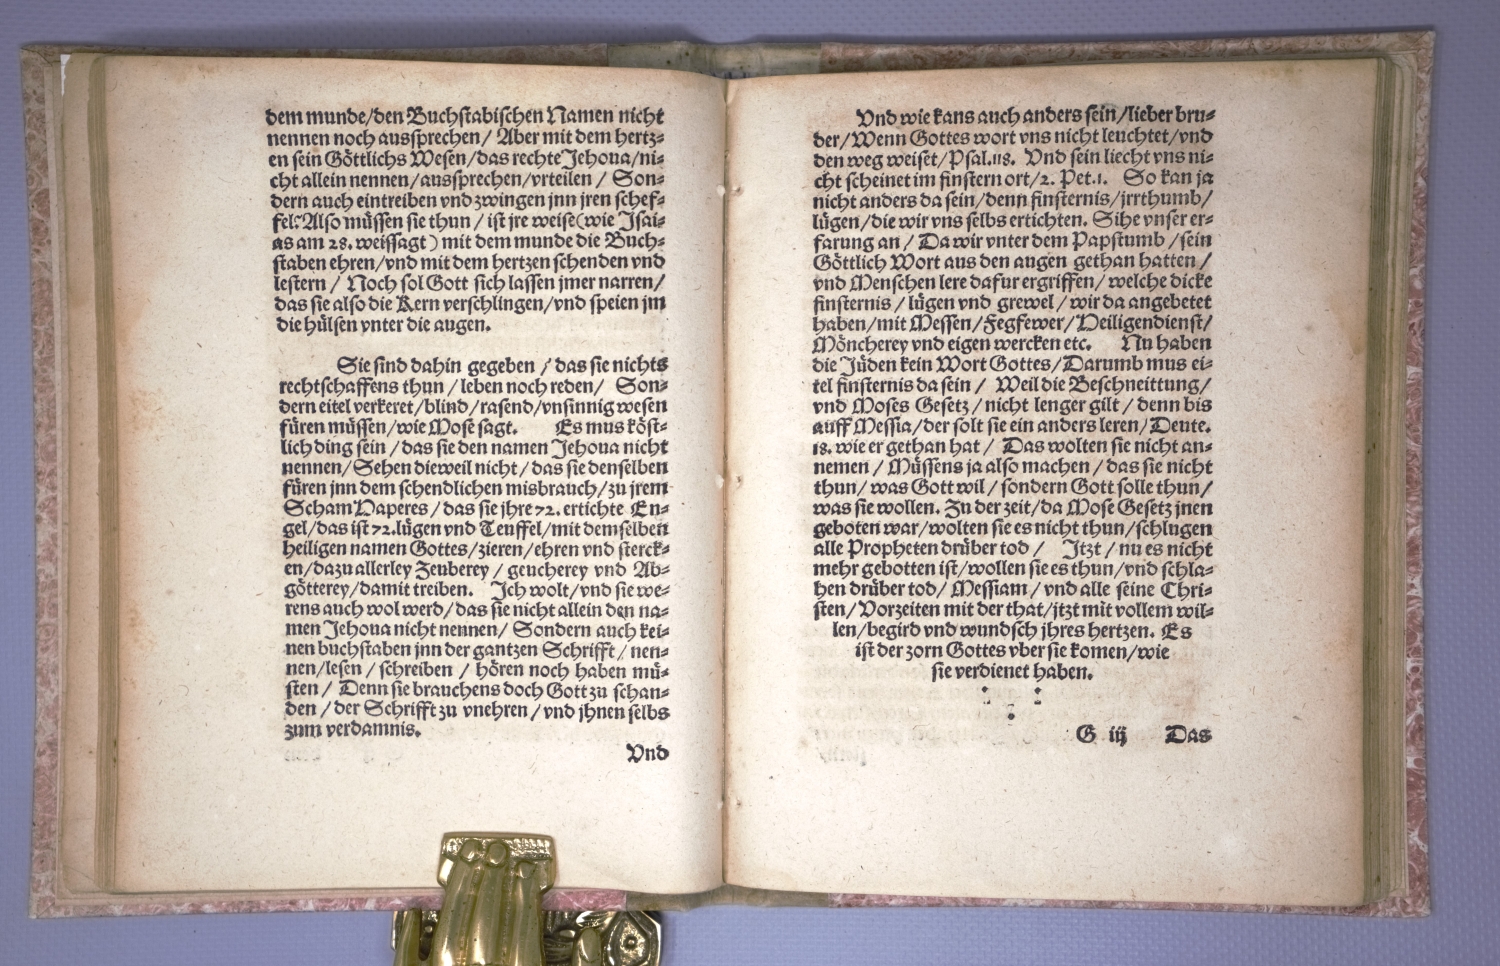 dem munde/den Buchstabischen Namen nicht
nennen noch aussprechen/ Aber mit dem hertz⸗
en sein Göttlichs Wesen/das rechte Jehoua/ni⸗
cht allein nennen/aussprechen/vrteilen/ Son⸗
dern auch eintreiben vnd zwingen jnn jren schef⸗
fel. Also müssen sie thun/ist jre weise(wie Isai⸗
as am 28. weissagt) mit dem munde die Buch⸗
staben ehren/vnd mit dem hertzen schenden vnd
lestern/ Noch sol Gott sich lassen jmer narren/
das sie also die Kern verschlingen/vnd speien jm
die hülsen vnter die augen.
Sie sind dahin gegeben/das sie nichts
rechtschaffens thun/leben noch reden/ Son⸗
dern eitel verkeret/blind/rasend/vnsinnig wesen
füren müssen/wie Mose sagt. Es mus köst⸗
lich ding sein/das sie den namen Jehoua nicht
nennen/Sehen dieweil nicht/das sie denselben
füren jnn dem schendlichen misbrauch/zu jrem
Scham Haperes/das sie jhre 72. ertichte En⸗
gel/das ist 72. lügen vnd Teuffel/mit demselben
heiligen namen Gottes/zieren/ehren vnd sterck⸗
en/dazu allerley Zeuberey/geucherey vnd Ab⸗
götterey/damit treiben. Ich wolt/vnd sie we⸗
rens auch wol werd/das sie nicht allein den na⸗
men Jehoua nicht nennen/Sondern auch kei⸗
nen buchstaben jnn der gantzen Schrifft/nen⸗
nen/lesen/schreiben/hören noch haben mü⸗
sten/Denn sie brauchens doch Gott zu schan⸗
den/der Schrifft zu vnehren/vnd jhnen selbs
zum verdamnis.
Vnd
Vnd wie kans auch anders sein/lieber bru⸗
der/Wenn Gottes wort vns nicht leuchtet/vnd
den weg weiset/Psal.118. Vnd sein liecht vns ni⸗
cht scheinet im finstern ort/2. Pet.1. So kan ja
nicht anders da sein/denn finsternis/jrrthumb/
lügen/die wir vns selbs ertichten. Sihe vnser er⸗
farung an/Da wir vnter dem Papstumb/sein
Göttlich Wort aus den augen gethan hatten/
vnd Menschen lere dafur ergriffen/welche dicke
finsternis/lügen vnd grewel/wir da angebetet
haben/mit Messen/Fegfewer/Heiligendienst/
Möncherey vnd eigen wercken etc. Nu haben
die Jüden kein Wort Gottes/Darumb mus ei⸗
tel finsternis da sein/Weil die Beschneittung/
vnd Moses Gesetz/nicht lenger gilt/denn bis
auff Messia/der solt sie ein anders leren/Deute.
18. wie er gethan hat/Das wolten sie nicht an⸗
nemen/Müssens ja also machen/das sie nicht
thun/was Gott wil/sondern Gott solle thun/
was sie wollen. Zu der zeit/da Mose Gesetz jnen
geboten war/wolten sie es nicht thun/schlugen
alle Propheten drüber tod/ Itzt/nu es nicht
mehr gebotten ist/wollen sie es thun/vnd schla⸗
hen drüber tod/Messiam/vnd alle seine Chri⸗
sten/Vorzeiten mit der that/jtzt mit vollem wil⸗
len/begird vnd wundsch jhres hertzen. Es
ist der zorn Gottes vber sie komen/wie
sie verdienet haben.
G iij Das